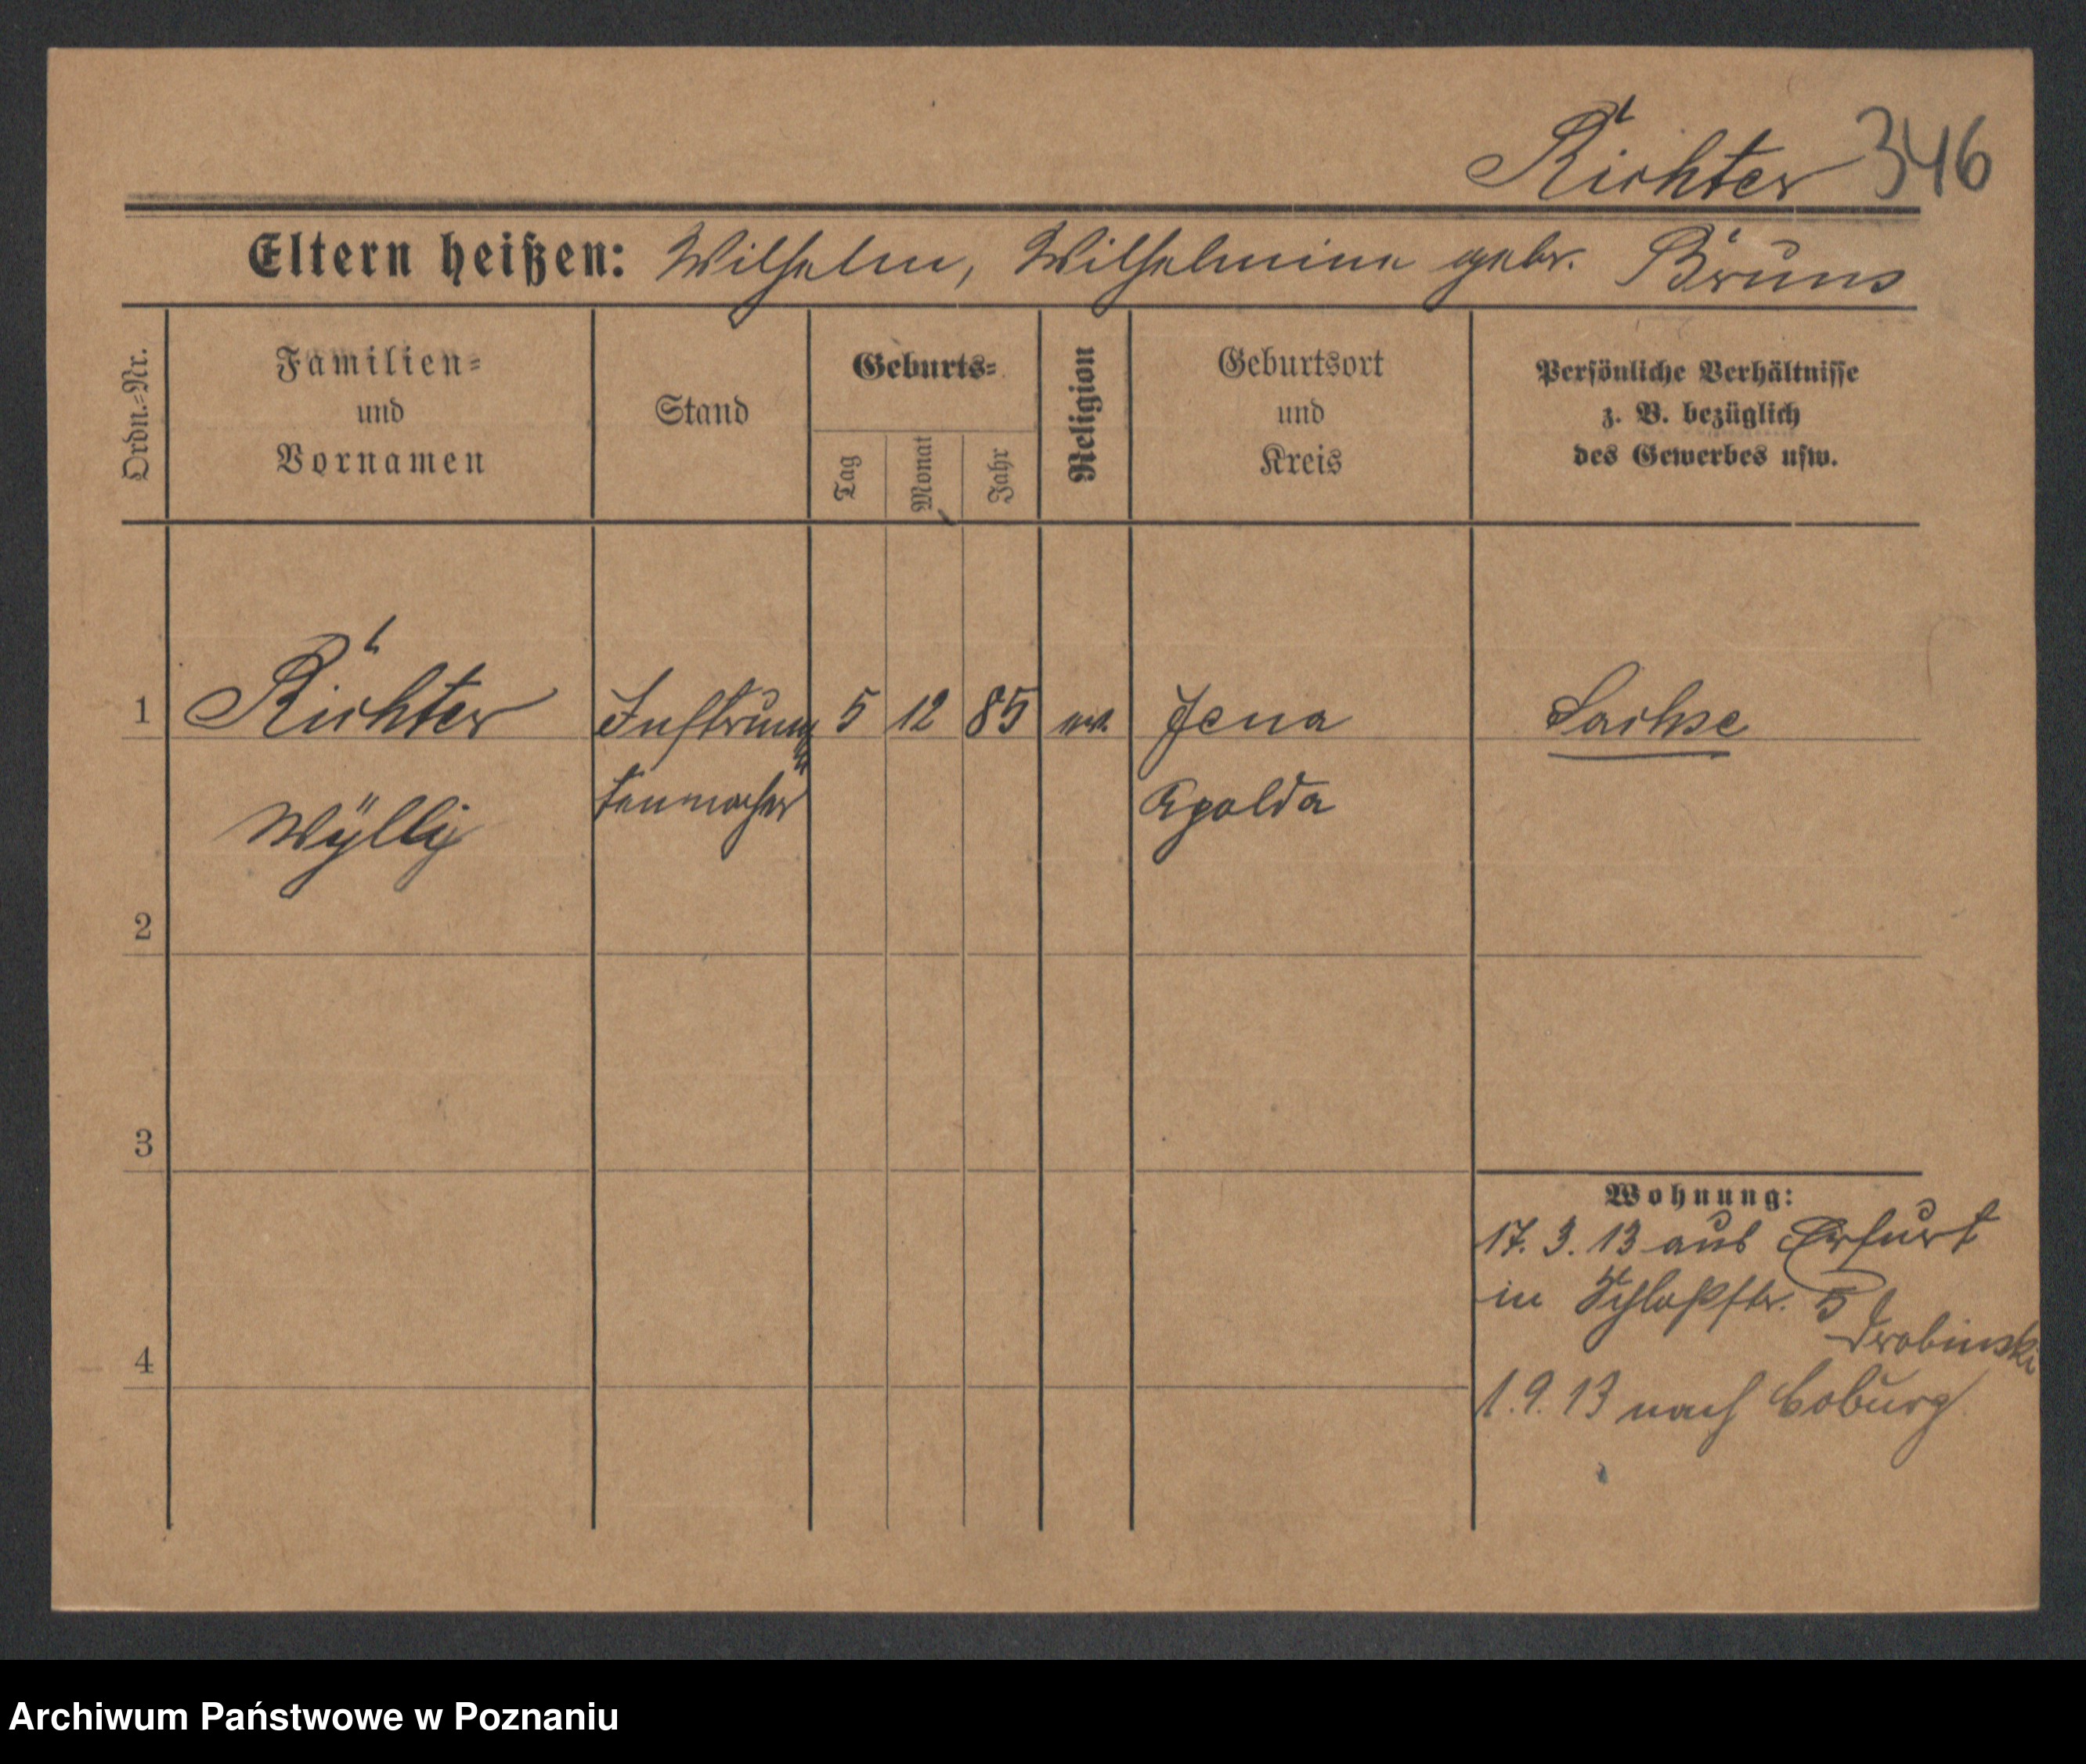 Richter 346
Eltern heißen: Wilhelm, Wilhelmine gebr. Bruns
Ordn.=Nr.
Familien=
und
Vornamen
Stand
Geburts=
Tag
Monat
Jahr
Religion
Geburtsort
und
Kreis
Persönliche Verhältnisse
z. B. bezüglich
des Gewerbes usw.
1 Richter Instrumen 5 12 85 ev. Jena Sachse
Wylly tenmacher Apolda
2
3
Wohnung:
17. 3. 13 aus Erfurt
in Schloßstr. 5
Drobinski
4
1. 9. 13 nach Coburg
Archiwum Państwowe w Poznaniu